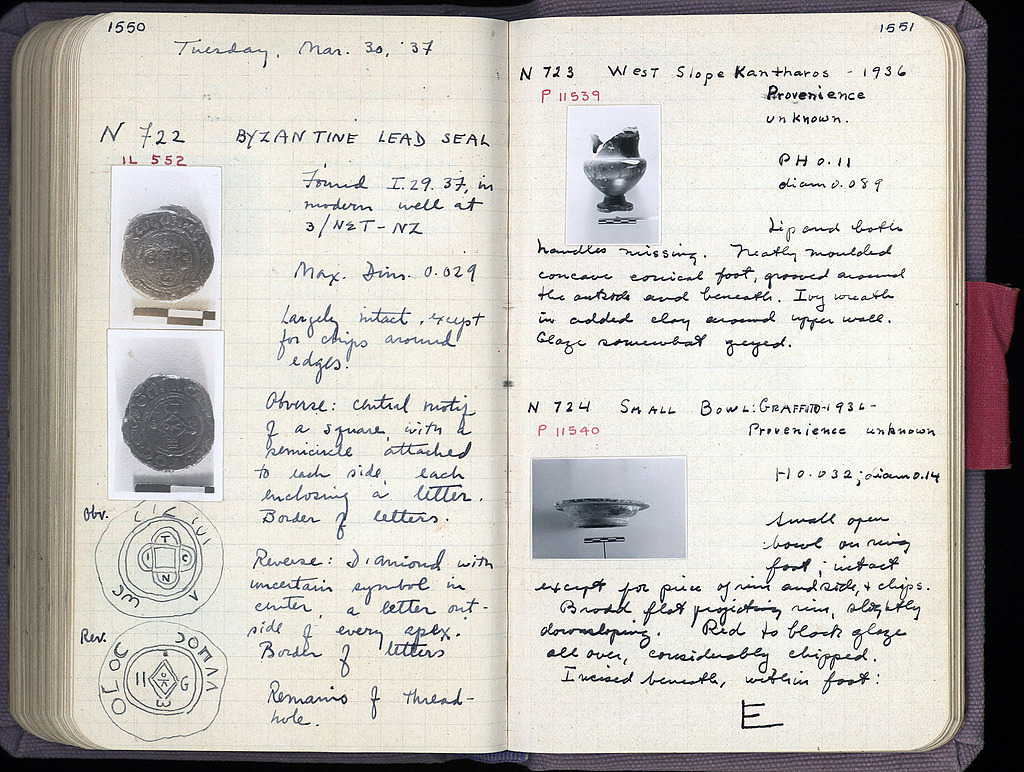 1550
Tuesday, Mar. 30, '37
N 722 BYZANTINE LEAD SEAL
IL 552
Found I.29.37, in
modern well at
3/NET-NZ
Max. Dim. 0.029
Largely intact, except
for chips around
edges.
Obverse: central motif
of a square, with a
semicircle attached
to each side, each
enclosing a letter.
Border of letters.
Obv.
T
I C
N
Reverse: Diamond with
uncertain symbol in
center, a letter out-
side of every apex.
Border of letters
Rev.
Remains of thread-
hole.
1551
N 723 West Slope Kantharos - 1936
P 11539 Provenience
unknown.
PH 0.11
diam 0.089
Lip and both
handles missing. Neatly moulded
concave conical foot, grooved around
the outside and beneath. Ivy wreath
in added clay around upper wall.
Glaze somewhat greyed.
N 724 Small Bowl: Graffito-1936-
P 11540 Provenience unknown
H 0.032; diam 0.14
Small open
bowl on ring
foot; intact
except for piece of rim and side, + chips.
Broad flat projecting rim, slightly
downsloping. Red to black glaze
all over, considerably chipped.
Incised beneath, within foot:
E